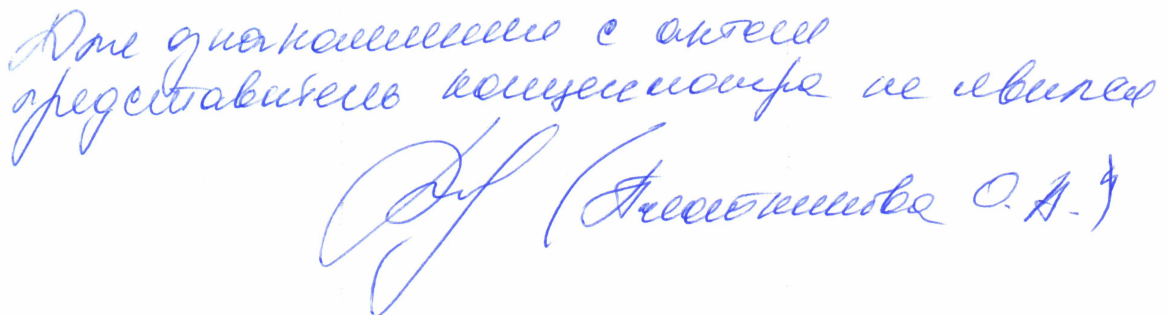 Для ознакомления с актом
представитель концессионера не явился
(Плотникова О.А.)